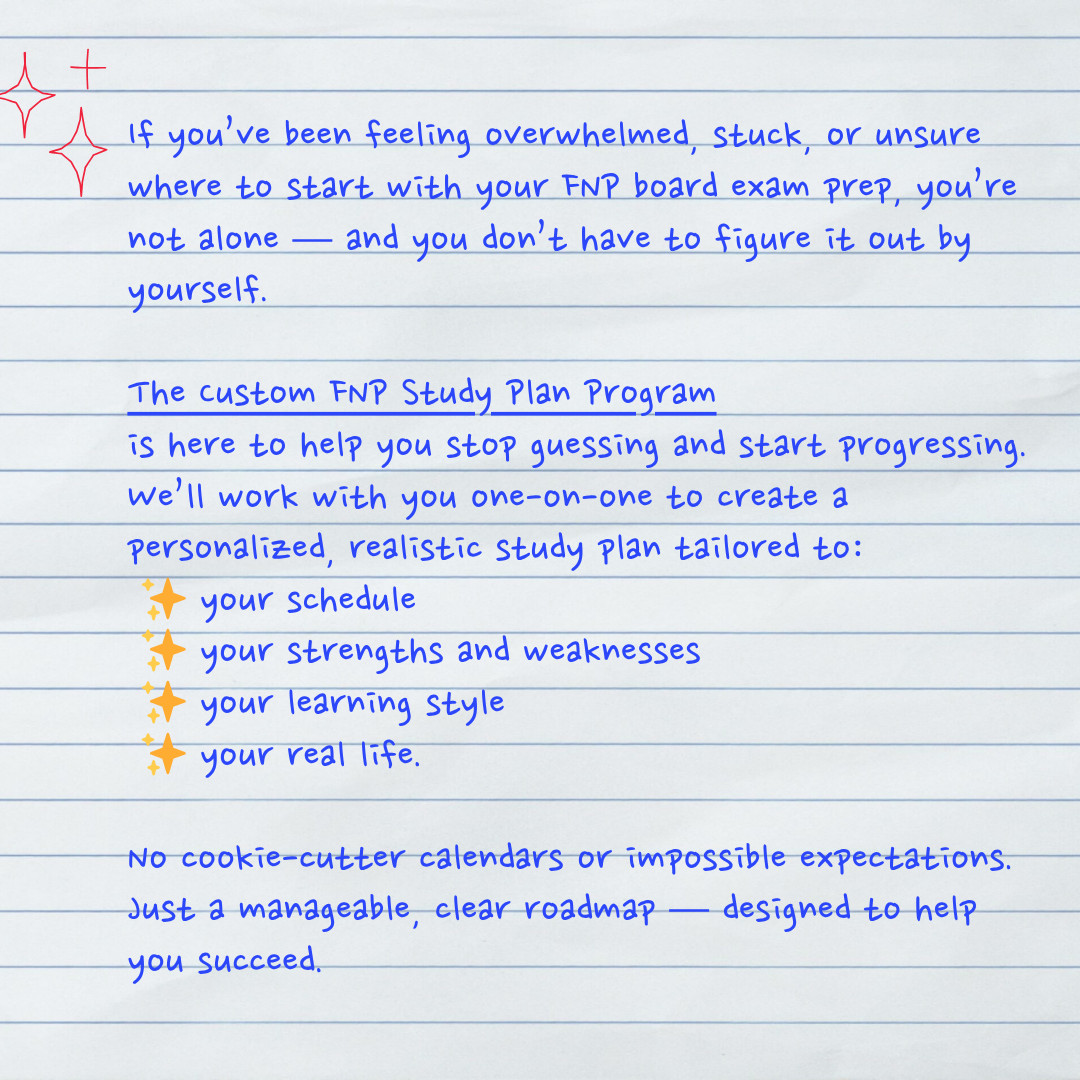 If you've been feeling overwhelmed, stuck, or unsure
where to start with your FNP board exam prep, you're
not alone — and you don't have to figure it out by
yourself.
The Custom FNP Study Plan Program
is here to help you stop guessing and start progressing.
We'll work with you one-on-one to create a
personalized, realistic study plan tailored to:
✨ your schedule
✨ your strengths and weaknesses
✨ your learning style
✨ your real life.
No cookie-cutter calendars or impossible expectations.
Just a manageable, clear roadmap — designed to help
you succeed.